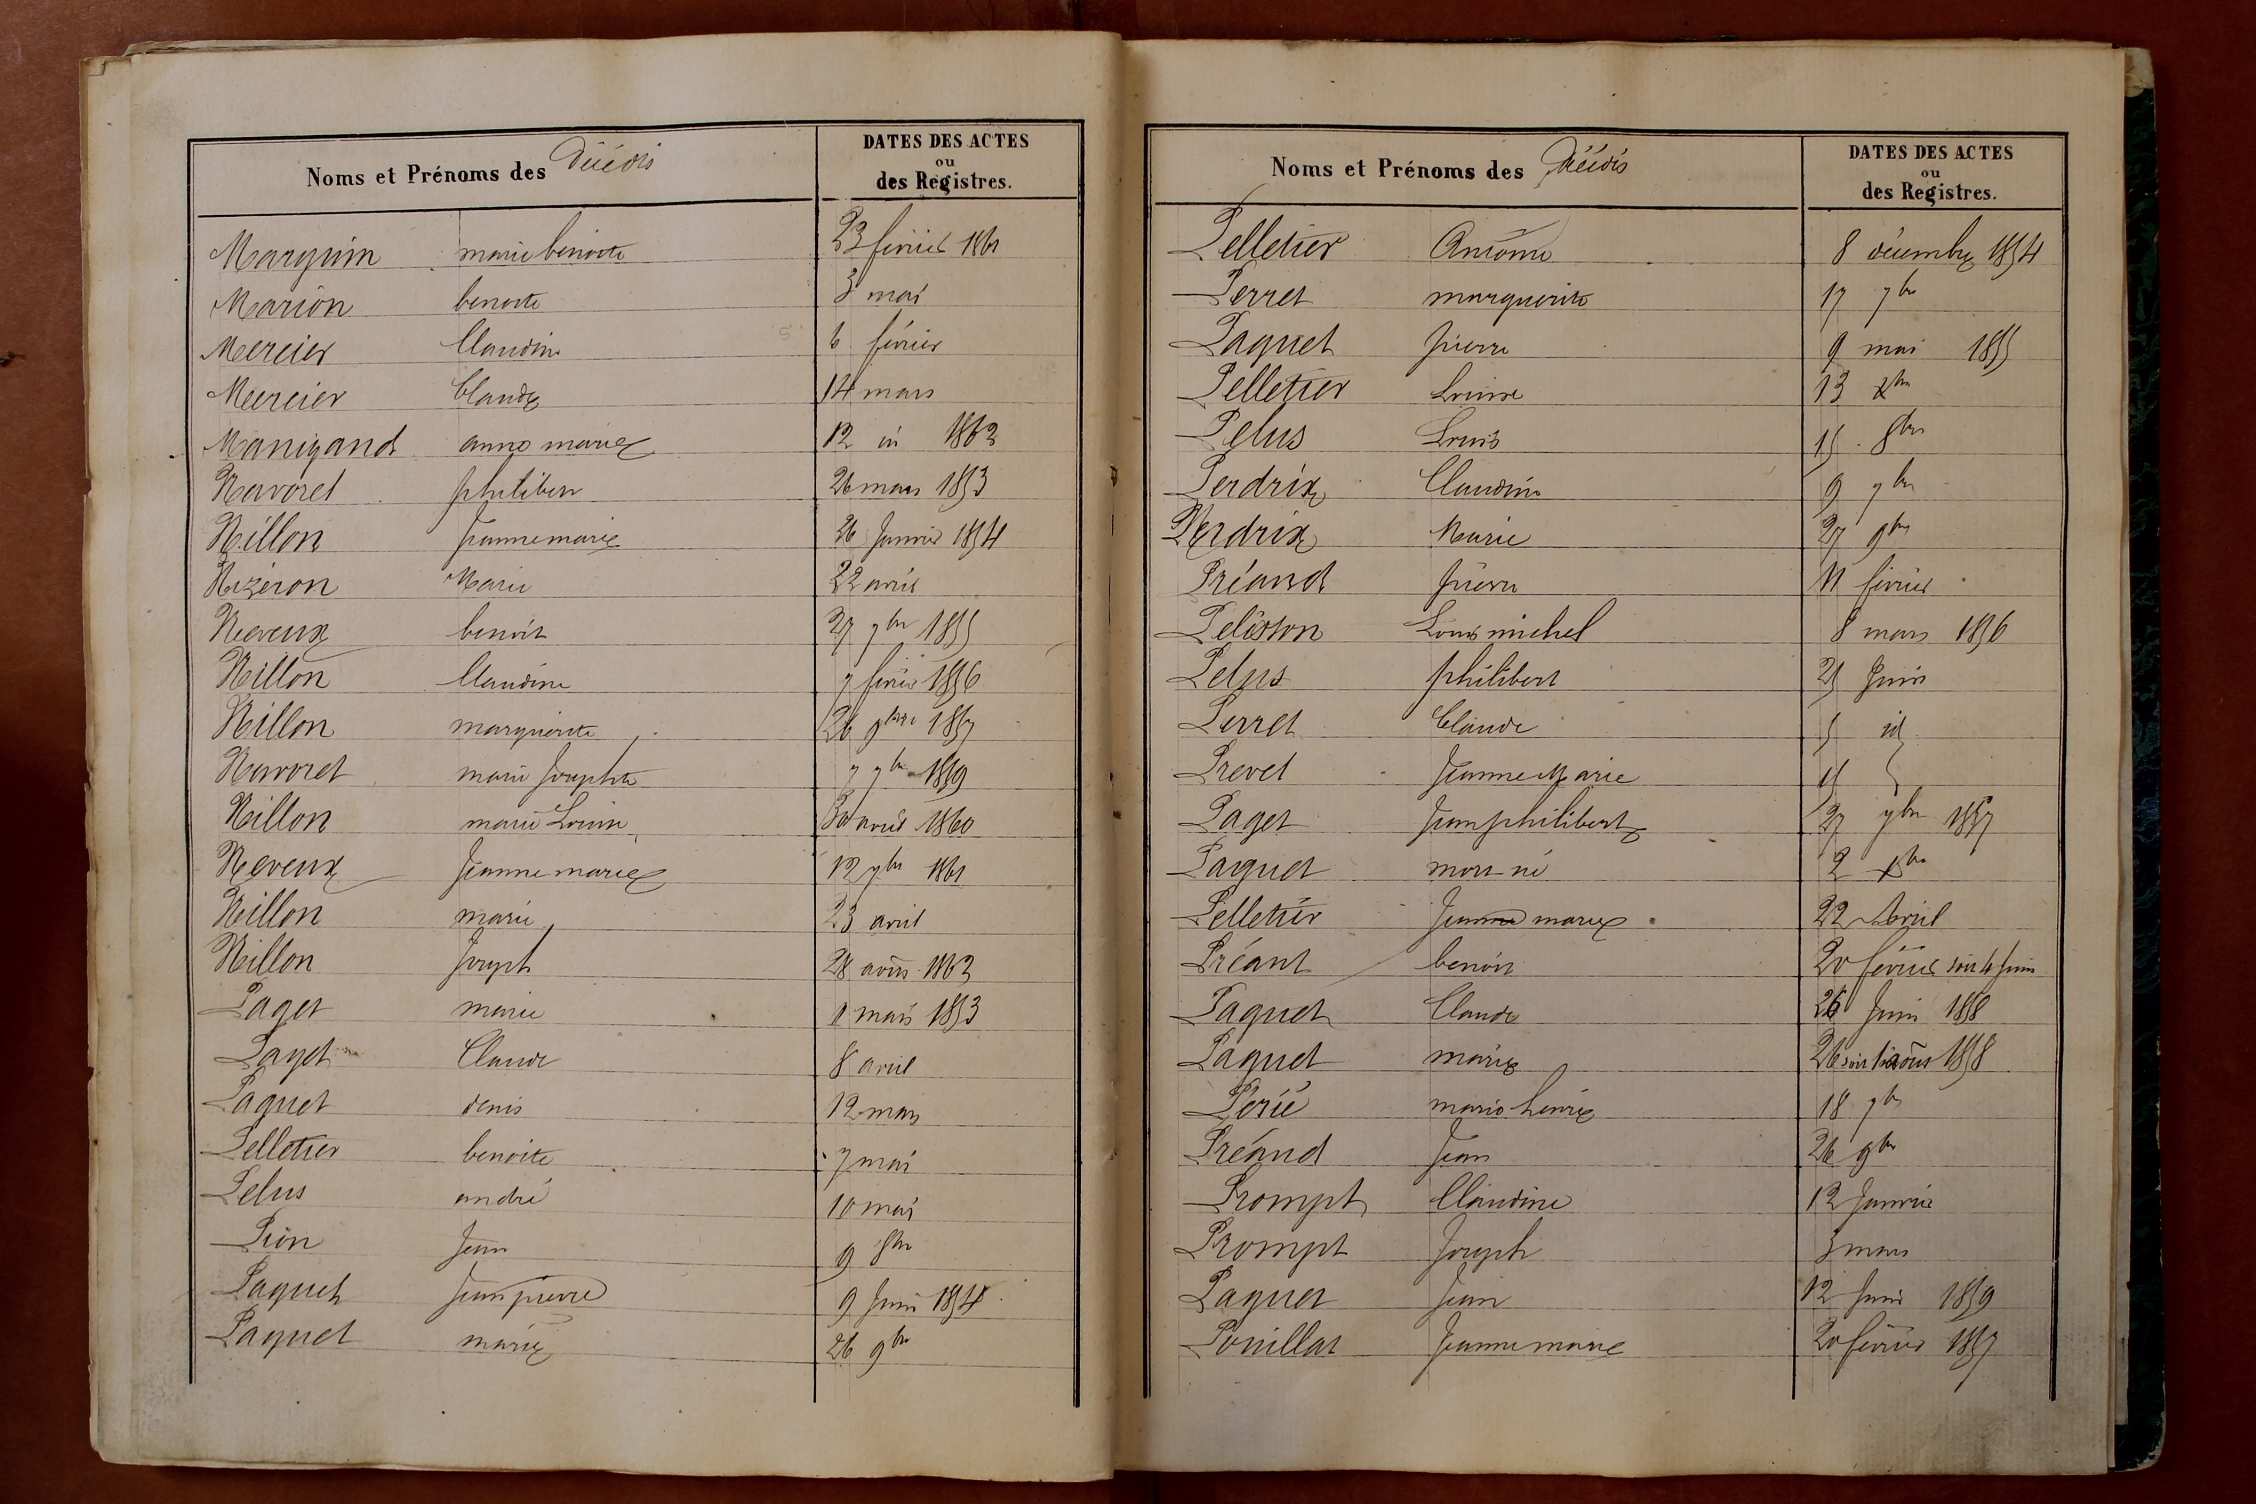 Noms et Prénoms des Décédés
DATES DES ACTES
ou
des Registres.
Marguin marie benoite 23 février 1861
Marion benoite 3 mai
Mercier Claudine 6 février
Mercier Claude 14 mars
Manigand anne marie 12 id 1862
Navoret philibert 26 mars 1853
Nillon Jeanne marie 26 Janvier 1854
Nizeron Marie 22 avril
Neveux benoit 27 7bre 1855
Nillon Claudine 7 février 1856
Nillon marguerite 26 9bre 1857
Navoret marie Josephte 7 7bre 1859
Nillon marie Louise 30 avril 1860
Neveux Jeanne marie 12 7bre 1861
Nillon marie 23 avril
Nillon Joseph 28 août 1862
Paget marie 1 mars 1853
Paget Claude 8 avril
Paquet denis 12 mars
Pelletier benoite 7 mai
Pelus andré 10 mai
Pion Jean 9 8bre
Paquet Jean pierre 9 Juin 1854
Paquet marie 26 9bre
Noms et Prénoms des Décédés
DATES DES ACTES
ou
des Registres.
Pelletier Antoine 8 décembre 1854
Perret marguerite 17 7bre
Paquet pierre 9 mai 1855
Pelletier Louise 13 xbre
Pelus Louis 15 8bre
Perdrix Claudine 9 7bre
Perdrix Marie 27 9bre
Préaud pierre 11 février
Pelisson Louis michel 8 mars 1856
Pelus philibert 25 Juin
Perret Claude 5 id
Prevel Jeanne Marie 15
Paget Jean philibert 27 7bre 1857
Paquet mort né 2 xbre
Pelletier Jeanne marie 22 Avril
Préant benoit 20 février soir 4 Juin
Paquet Claude 26 Juin 1858
Paquet marie 26 soir 1 août 1858
Marie henrie 18 7bre
Préaud Jean 26 9bre
Prompt Claudine 12 Janvier
Prompt Joseph 3 mars
Paquet Jean 12 Juin 1859
Pouillat Jeanne marie 20 février 1857